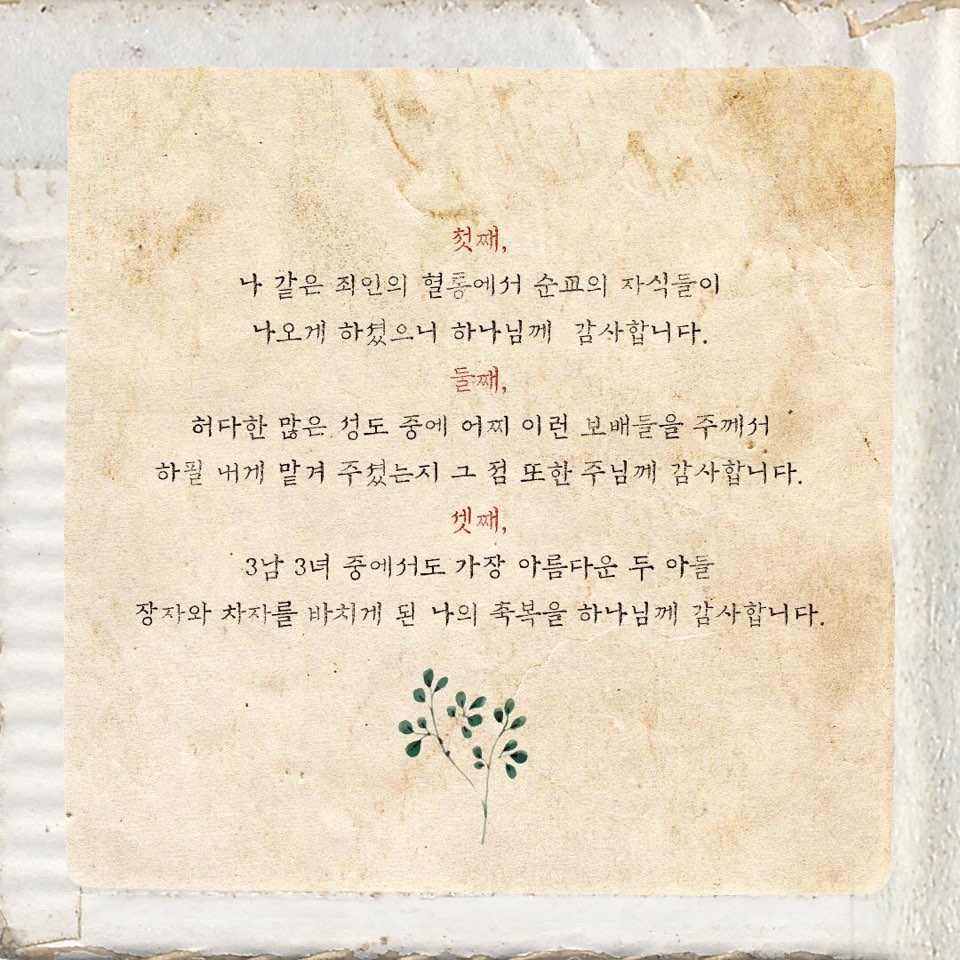 첫째,
나 같은 죄인의 혈통에서 순교의 자식들이
나오게 하셨으니 하나님께 감사합니다.
둘째,
허다한 많은 성도 중에 어찌 이런 보배들을 주께서
하필 내게 맡겨 주셨는지 그 점 또한 주님께 감사합니다.
셋째,
3남 3녀 중에서도 가장 아름다운 두 아들
장자와 차자를 바치게 된 나의 축복을 하나님께 감사합니다.